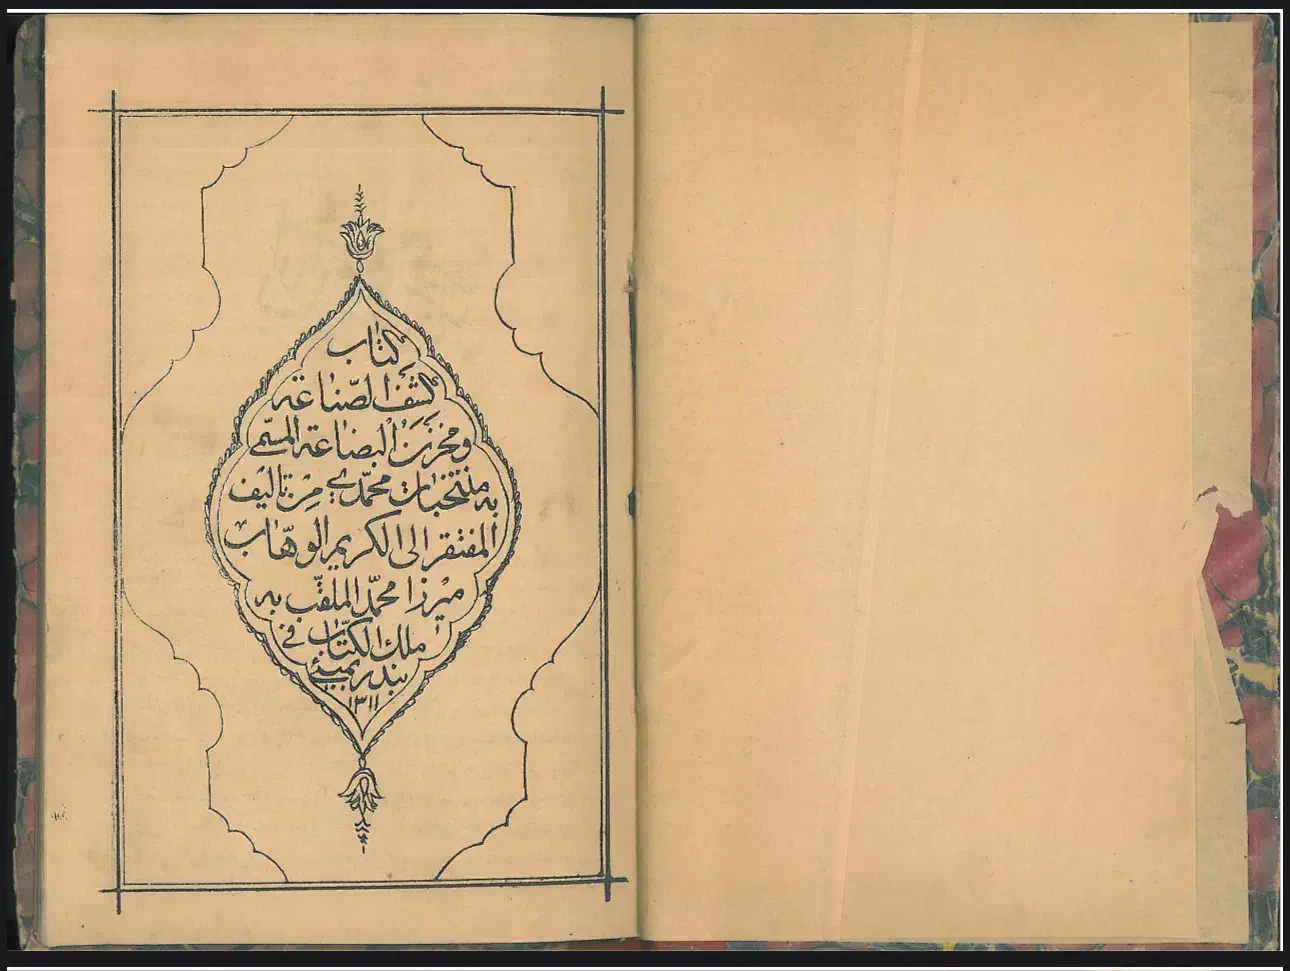 كتاب
كشف الصّناعة
ومخزن البضاعة المسمّى
به منتخبات محمّدي من تاليف
المفتقر الى الكريم الوهّاب
ميرزا محمّد الملقّب به
ملك الكتّاب في
بندر بمبئي
١٣١١